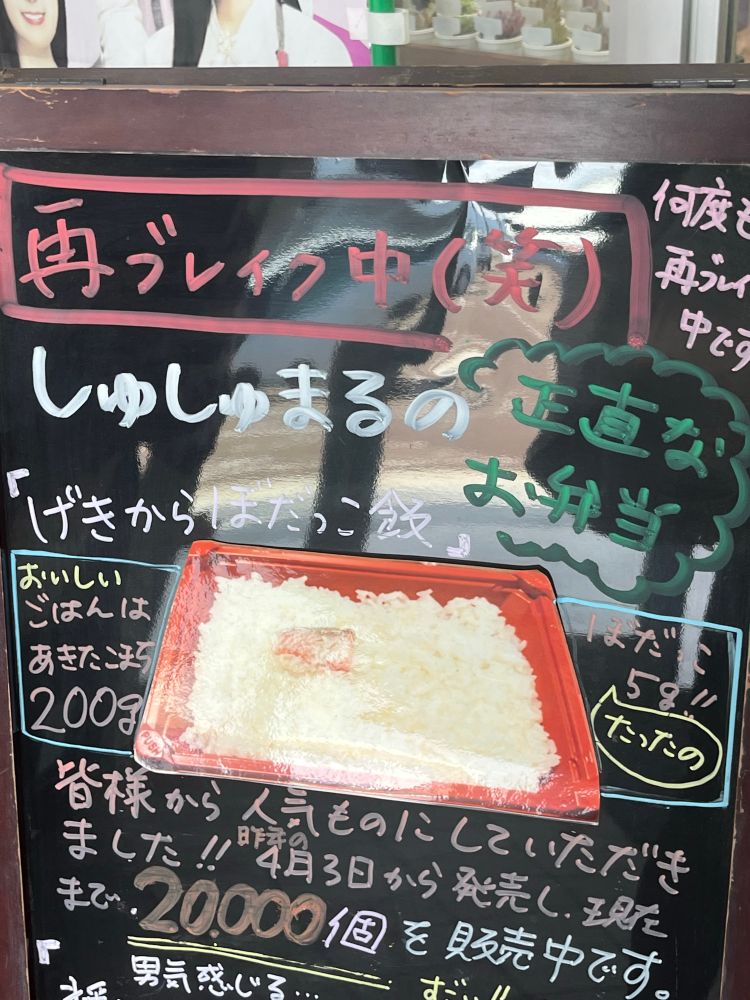 再ブレイク中(笑)
何度も
再ブレイ
中です
しゅしゅまるの
正直な
お弁当
「げきからぼだっこ飯」
おいしい
ごはんは
あきたこまち
200g
ぼだっこ
5g!!
たったの
皆様から人気ものにしていただき
ました!!昨年の4月3日から発売し、現在
まで、20,000個を販売中です。
「
男気感じる…
すごい!!